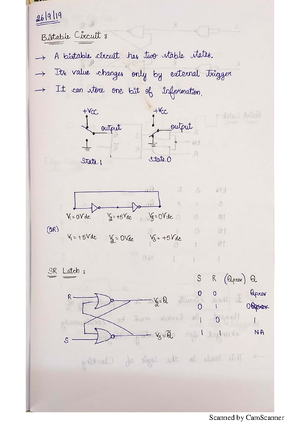 26/9/19
Bistable Circuit :
→ A bistable circuit has two stable states.
→ Its value changes only by external trigger
→ It can store one bit of Information.
+Vcc +Vcc
output output
State 1 State 0
V₁=0Vdc V₂=+5Vdc V₃=0Vdc
(OR)
V₁=+5Vdc V₂=0Vdc V₃=+5Vdc
SR Latch :
S R (Qprev) Q
0 0 Qprev
0 1 0
1 0 1
1 1 NA
R
S
Scanned by CamScanner